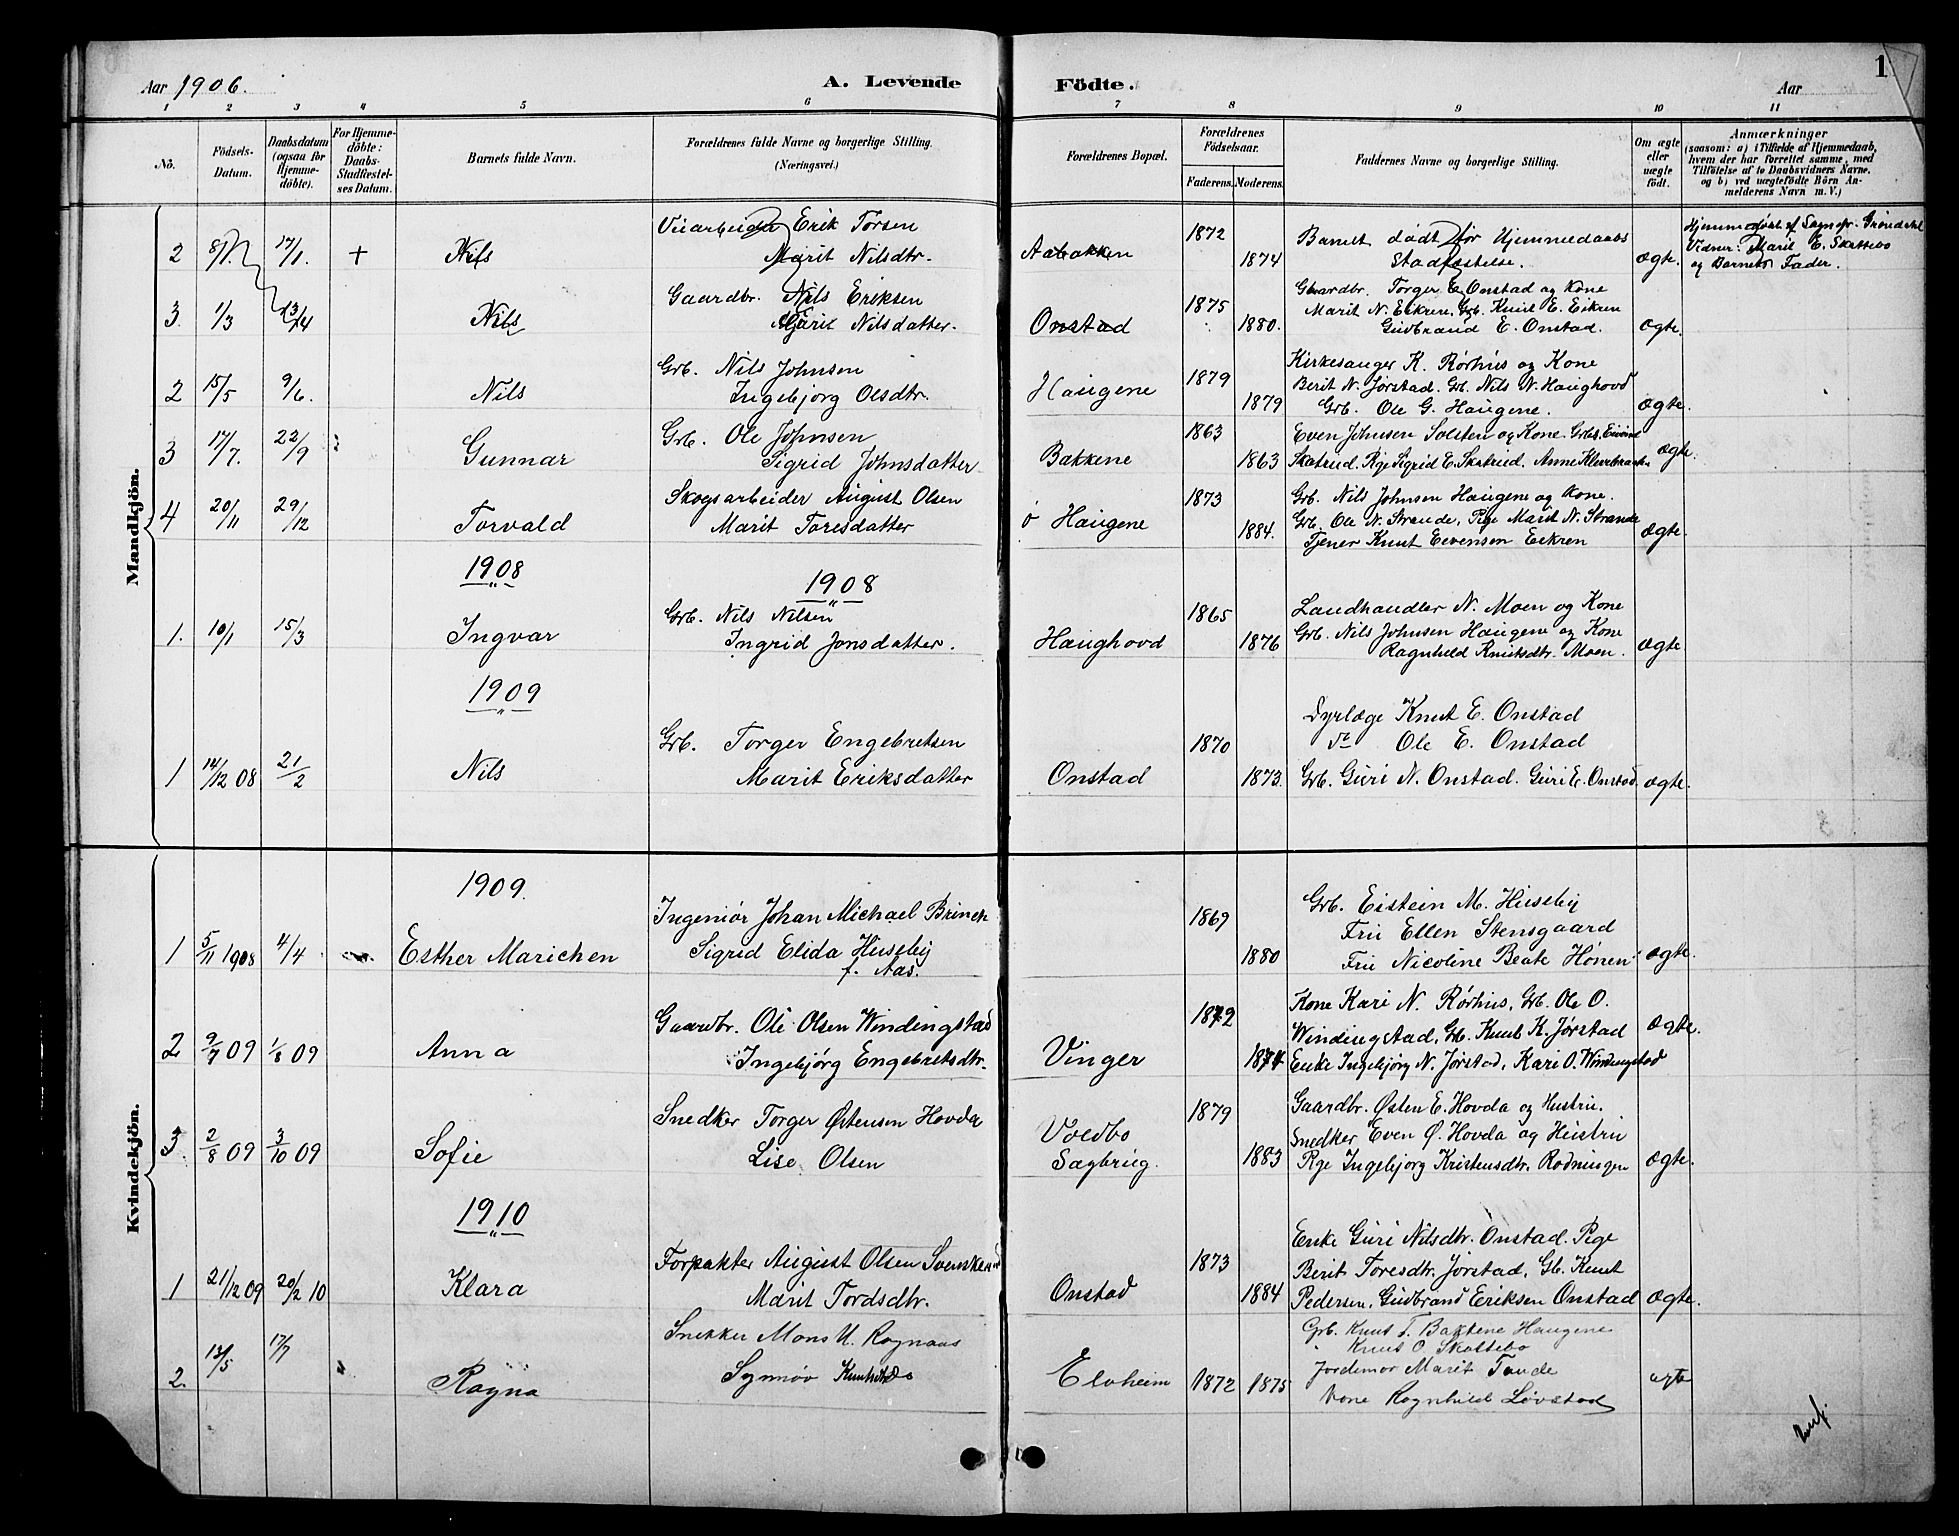 Aar 1906.
A. Levende Födte.
Aar
1
1 2 3 4 5 6 7 8 9 10 11
No.
Födsels-Datum.
Daabsdatum (ogsaa for Hjemme-döbte).
For Hjemme-döbte: Daabs-Stadfæstel-ses Datum.
Barnets fulde Navn.
Forældrenes fulde Navne og borgerlige Stilling. (Næringsvei.)
Forældrenes Bopæl.
Forældrenes Födselsaar.
Faderens. Moderens.
Faddernes Navne og borgerlige Stilling.
Om ægte eller uægte födt.
Anmærkninger
(saasom: a) i Tilfælde af Hjemmedaab,
hvem der har forrettet samme, med
Tilföielse af to Daabsvidners Navne.
og b) ved uægtefödte Börn An-
melderens Navn m. V.)
Mandkjön.
2 8/1. 17/1. + Nils
Erik Torsen
Marit Nilsdtr.
Aabakken 1872 1874
Barnet dødt før Hjemmedaabs
Stadfæstelse.
ægte.
Vidner: Marit E. Skattebo
og Barnets Fader.
3. 1/3 13/4 Nils
Gaardbr. Nils Eriksen
Nilsdatter.
Onstad 1875 1880.
Gaardbr. Torger E. Onstad og Kone
Marit N. Eikren, Grb. Knut E. Eikren
Gudbrand E. Onstad.
ægte.
2 15/5 9/6. Nils
Grb. Nils Johnsen
Ingebjorg Olsdtr.
Haugene 1879 1879
Kirkesanger K. Rørhus og Kone
Berit N. Jørstad. Grb. Nils N. Haughovd
Grb. Ole G. Haugene.
ægte.
3 17/7. 22/9 Gunnar
Grb. Ole Johnsen
Sigrid Johnsdatter
Bakkene 1863 1863
Even Johnsen Solsten og Kone. Grbr. Eivind
Skatrud. Pige Sigrid E. Skatrud. Anne
ægte.
4 20/11 29/12 Torvald
Skogsarbeider August Olsen
Marit Toresdatter
ø Haugene 1873 1884.
Grb. Nils Johnsen Haugene og Kone.
Grb. Ole N. Strande, Pige Marit N. Strande
Tjener Knut Eevensen Eekren
ægte.
1908 1908
1. 10/1 15/3 Ingvar
Grb. Nils Nilsen
Ingrid Jonsdatter.
Haughovd 1865 1876
Landhandler N. Moen og Kone
Grb. Nils Johnsen Haugene og Kone
Ragnhild Knutsdtr. Moen.
ægte
1909
1 14/12 08 21/2 Nils
Grb. Torger Engebretsen
Marit Eriksdatter
Onstad 1870 1873.
Dyrlæge Knut E. Onstad
do Ole E. Onstad
Grb. Guri N. Onstad. Guri E. Onstad.
ægte.
Kvindekjön.
1909.
1 5/11 1908 4/4 Esther Marichen
Ingeniør Johan Michael Brinch
Sigrid Elida Huseby
f. Aas.
1869 1880
Grb. Eistein M. Huseby
Fru Ellen Stensgaard
Fru Nicoline Beate Hønen
ægte.
2 9/7 09 1/8 09 Anna
Gaardbr. Ole Olsen Windingstad
Ingebjørg Engebretsdtr.
Vinger 1872 1874
Kone Kari N. Rørhus, Grb. Ole O.
Windingstad, Grb. Knut K. Jørstad
Enke Ingebjørg N. Jørstad, Kari O. Windingstad
ægte.
3 2/8 09 3/10 09 Sofie
Snedker Torger Østensen Hovda
Lise Olsen
Voldbo
Sagbrug.
1879 1883
Gaardbr. Østen E. Hovda og Hustru.
Snedker Even Ø. Hovda og Hustru
Pige Ingebjorg Kristensdtr. Rodningen
ægte.
1910
1 21/12 09 20/2 10 Klara
Forpakter August Olsen
Marit Tordsdtr.
Onstad 1873 1884
Enke Guri Nilsdtr. Onstad. Pige
Berit Toresdtr. Jørstad, Gb. Knut
Pedersen, Gudbrand Eriksen Onstad
ægte.
2. 13/5 17/7 Ragna
Snekker Mons U. Rognaas
Synnøv
Elvheim 1872 1875
Grb. Knut T. Bakkene Haugene
" Knut O. Skattebo
Jordemor Marit Tande
Kone Ragnhild Løvstad
ægte